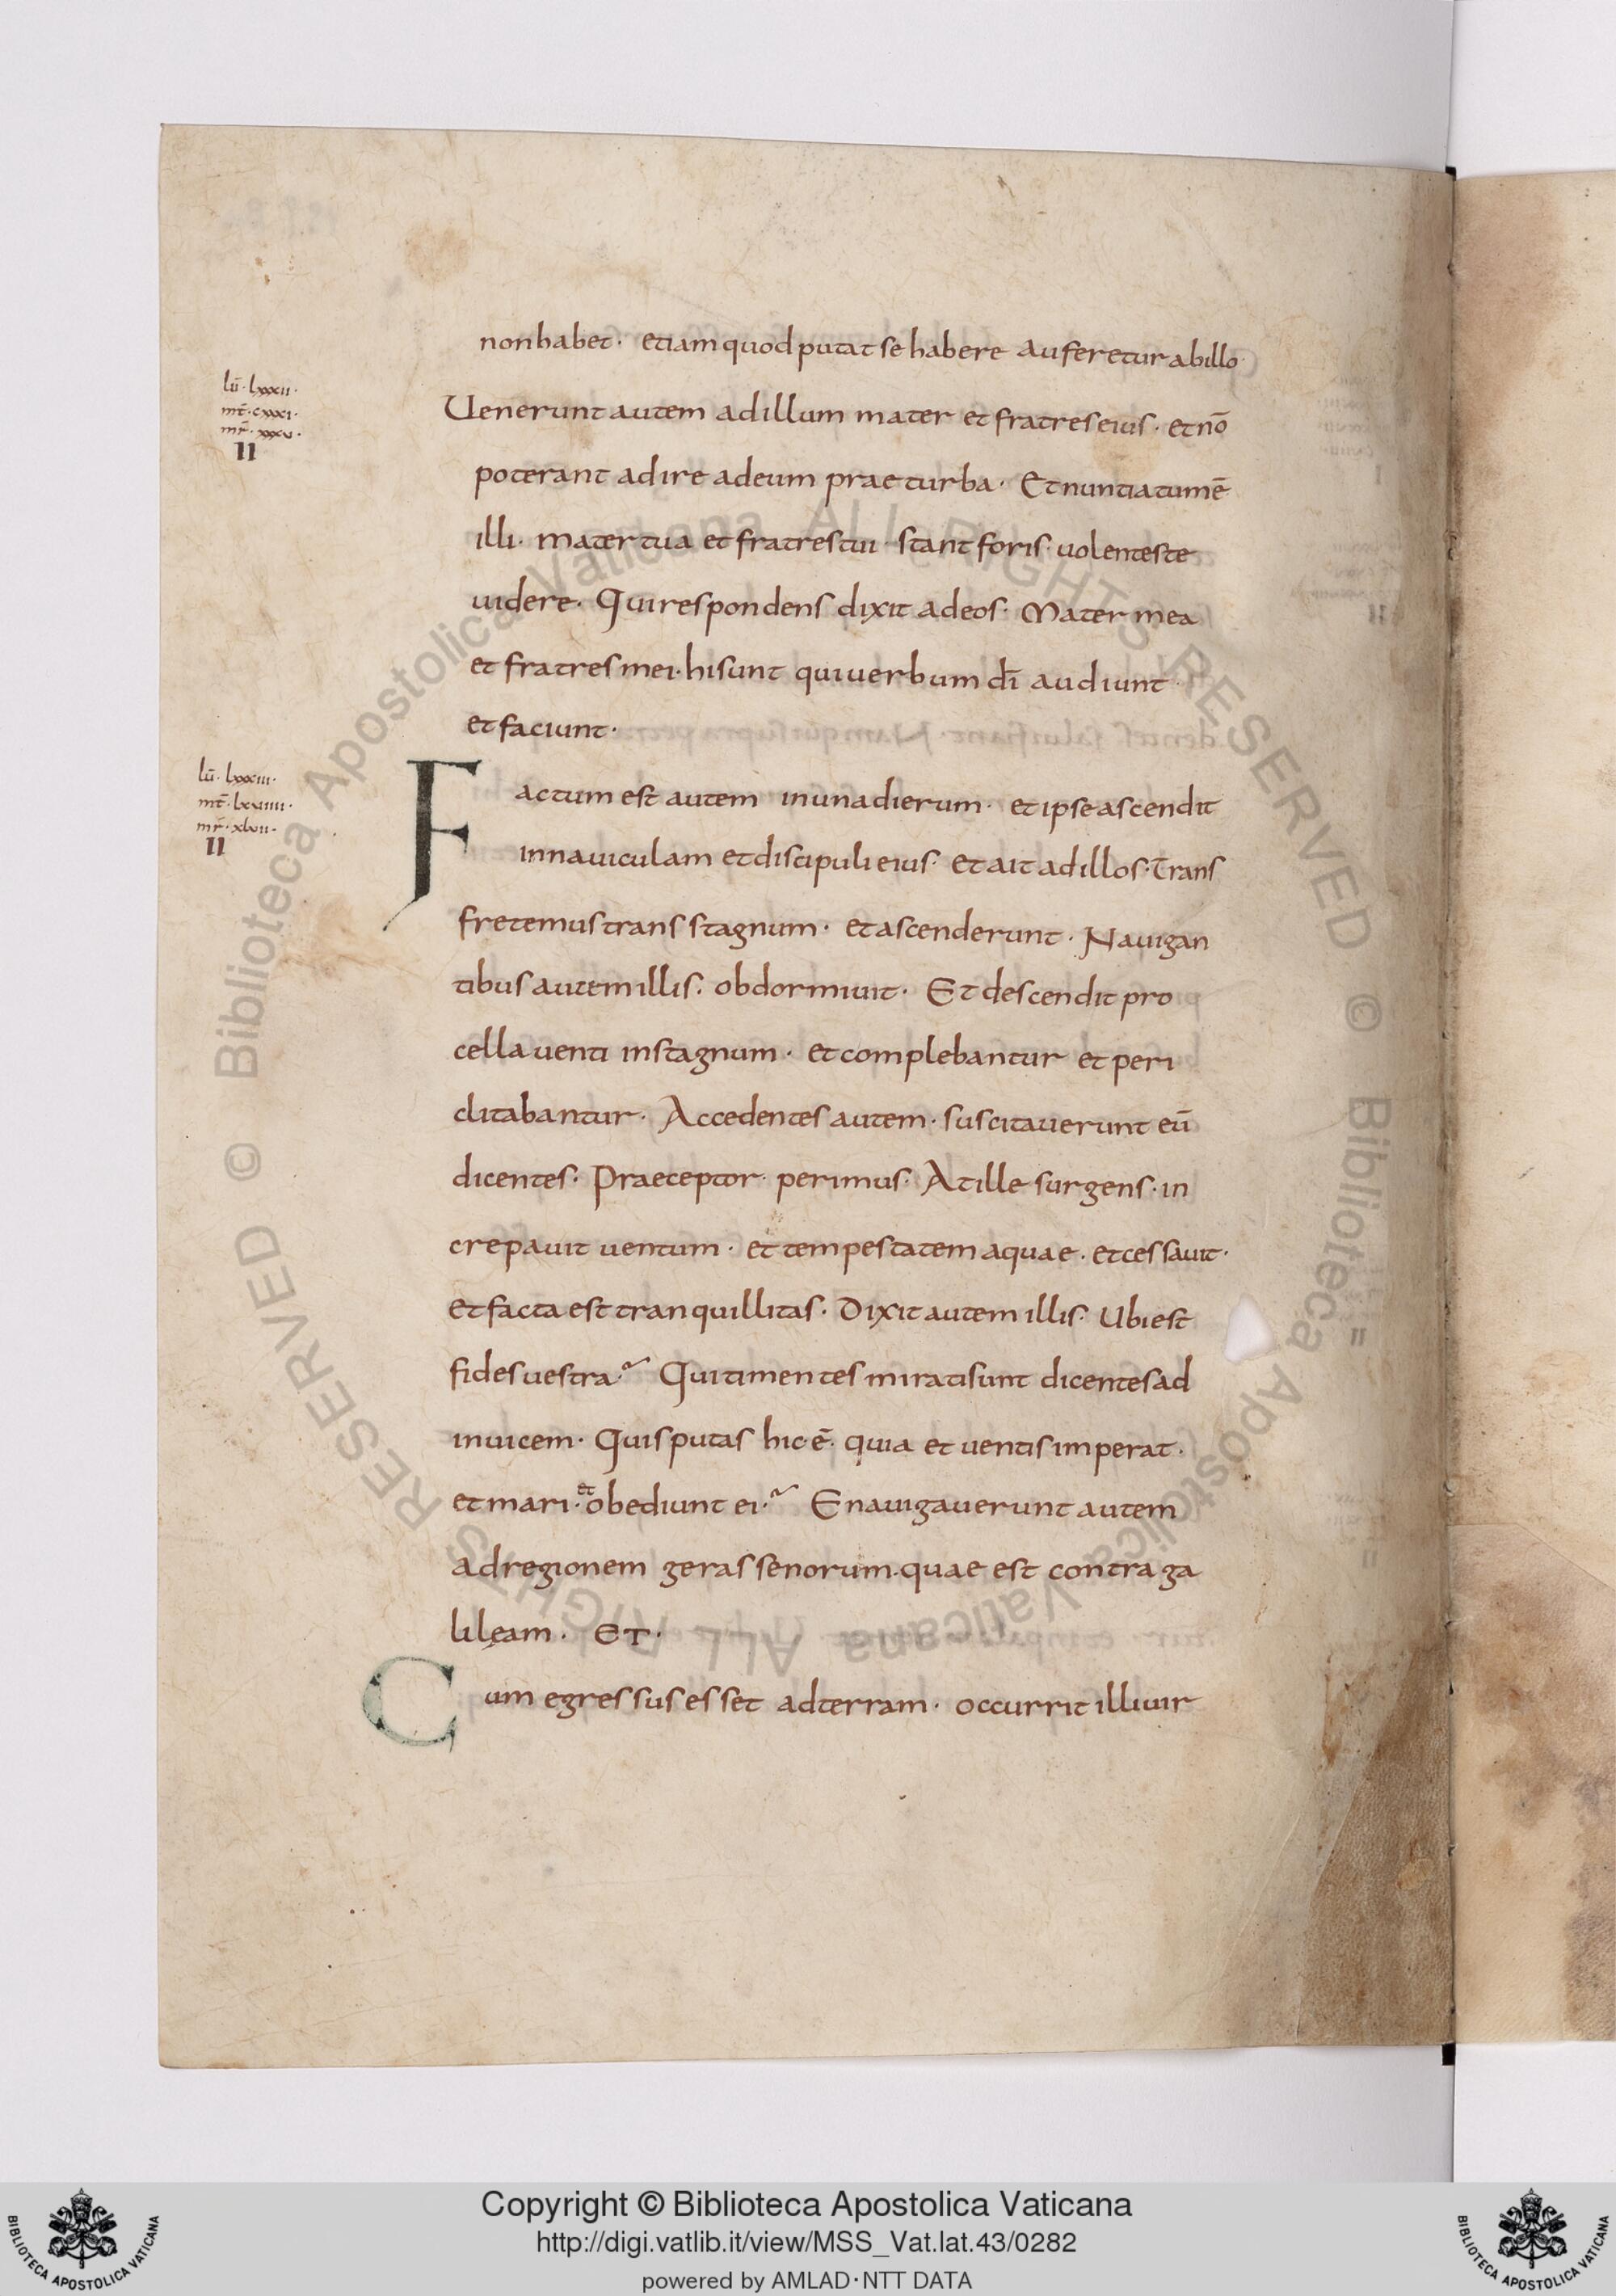 non habet · etiam quod putat se habere auferetur ab illo ·
lū · lxxxii ·
mt̄ · cxxxi ·
mr̄ · xxxv ·
II
Uenerunt autem ad illum mater et fratres eius · et nō
poterant adire ad eum prae turba · Et nuntiatum ē
illi · mater tua et fratres tui · stant foris · uolentes te
uidere · Qui respondens dixit ad eos · Mater mea
et fratres mei · hi sunt qui uerbum dī audiunt ·
et faciunt ·
lū · lxxxiii ·
mt̄ · lxviiii ·
mr̄ · xlvii ·
II
Factum est autem in una dierum · et ipse ascendit
in nauiculam et discipuli eius · et ait ad illos · Trans
fretemus trans stagnum · et ascenderunt · Nauigan
tibus autem illis · obdormiuit · Et descendit pro
cella uenti in stagnum · et complebantur et peri
clitabantur · Accedentes autem · suscitauerunt eū
dicentes · Praeceptor · perimus · At ille surgens · in
crepauit uentum · et tempestatem aquae · et cessauit ·
et facta est tranquillitas · Dixit autem illis · Ubi est
fides uestra ·~ Qui timentes mirati sunt dicentes ad
inuicem · Quis putas hic ē · quia et uentis imperat ·
et mari · et obediunt ei ·~ Enauigauerunt autem
ad regionem gerassenorum · quae est contra ga
lilęam · ET ·
Cum egressus esset ad terram · occurrit illi uir
© Biblioteca Apostolica Vaticana ALL RIGHTS RESERVED © Biblioteca Apostolica Vaticana ALL RIGHTS RESERVED
Copyright © Biblioteca Apostolica Vaticana
http://digi.vatlib.it/view/MSS_Vat.lat.43/0282
powered by AMLAD·NTT DATA
BIBLIOTECA APOSTOLICA VATICANA
BIBLIOTECA APOSTOLICA VATICANA